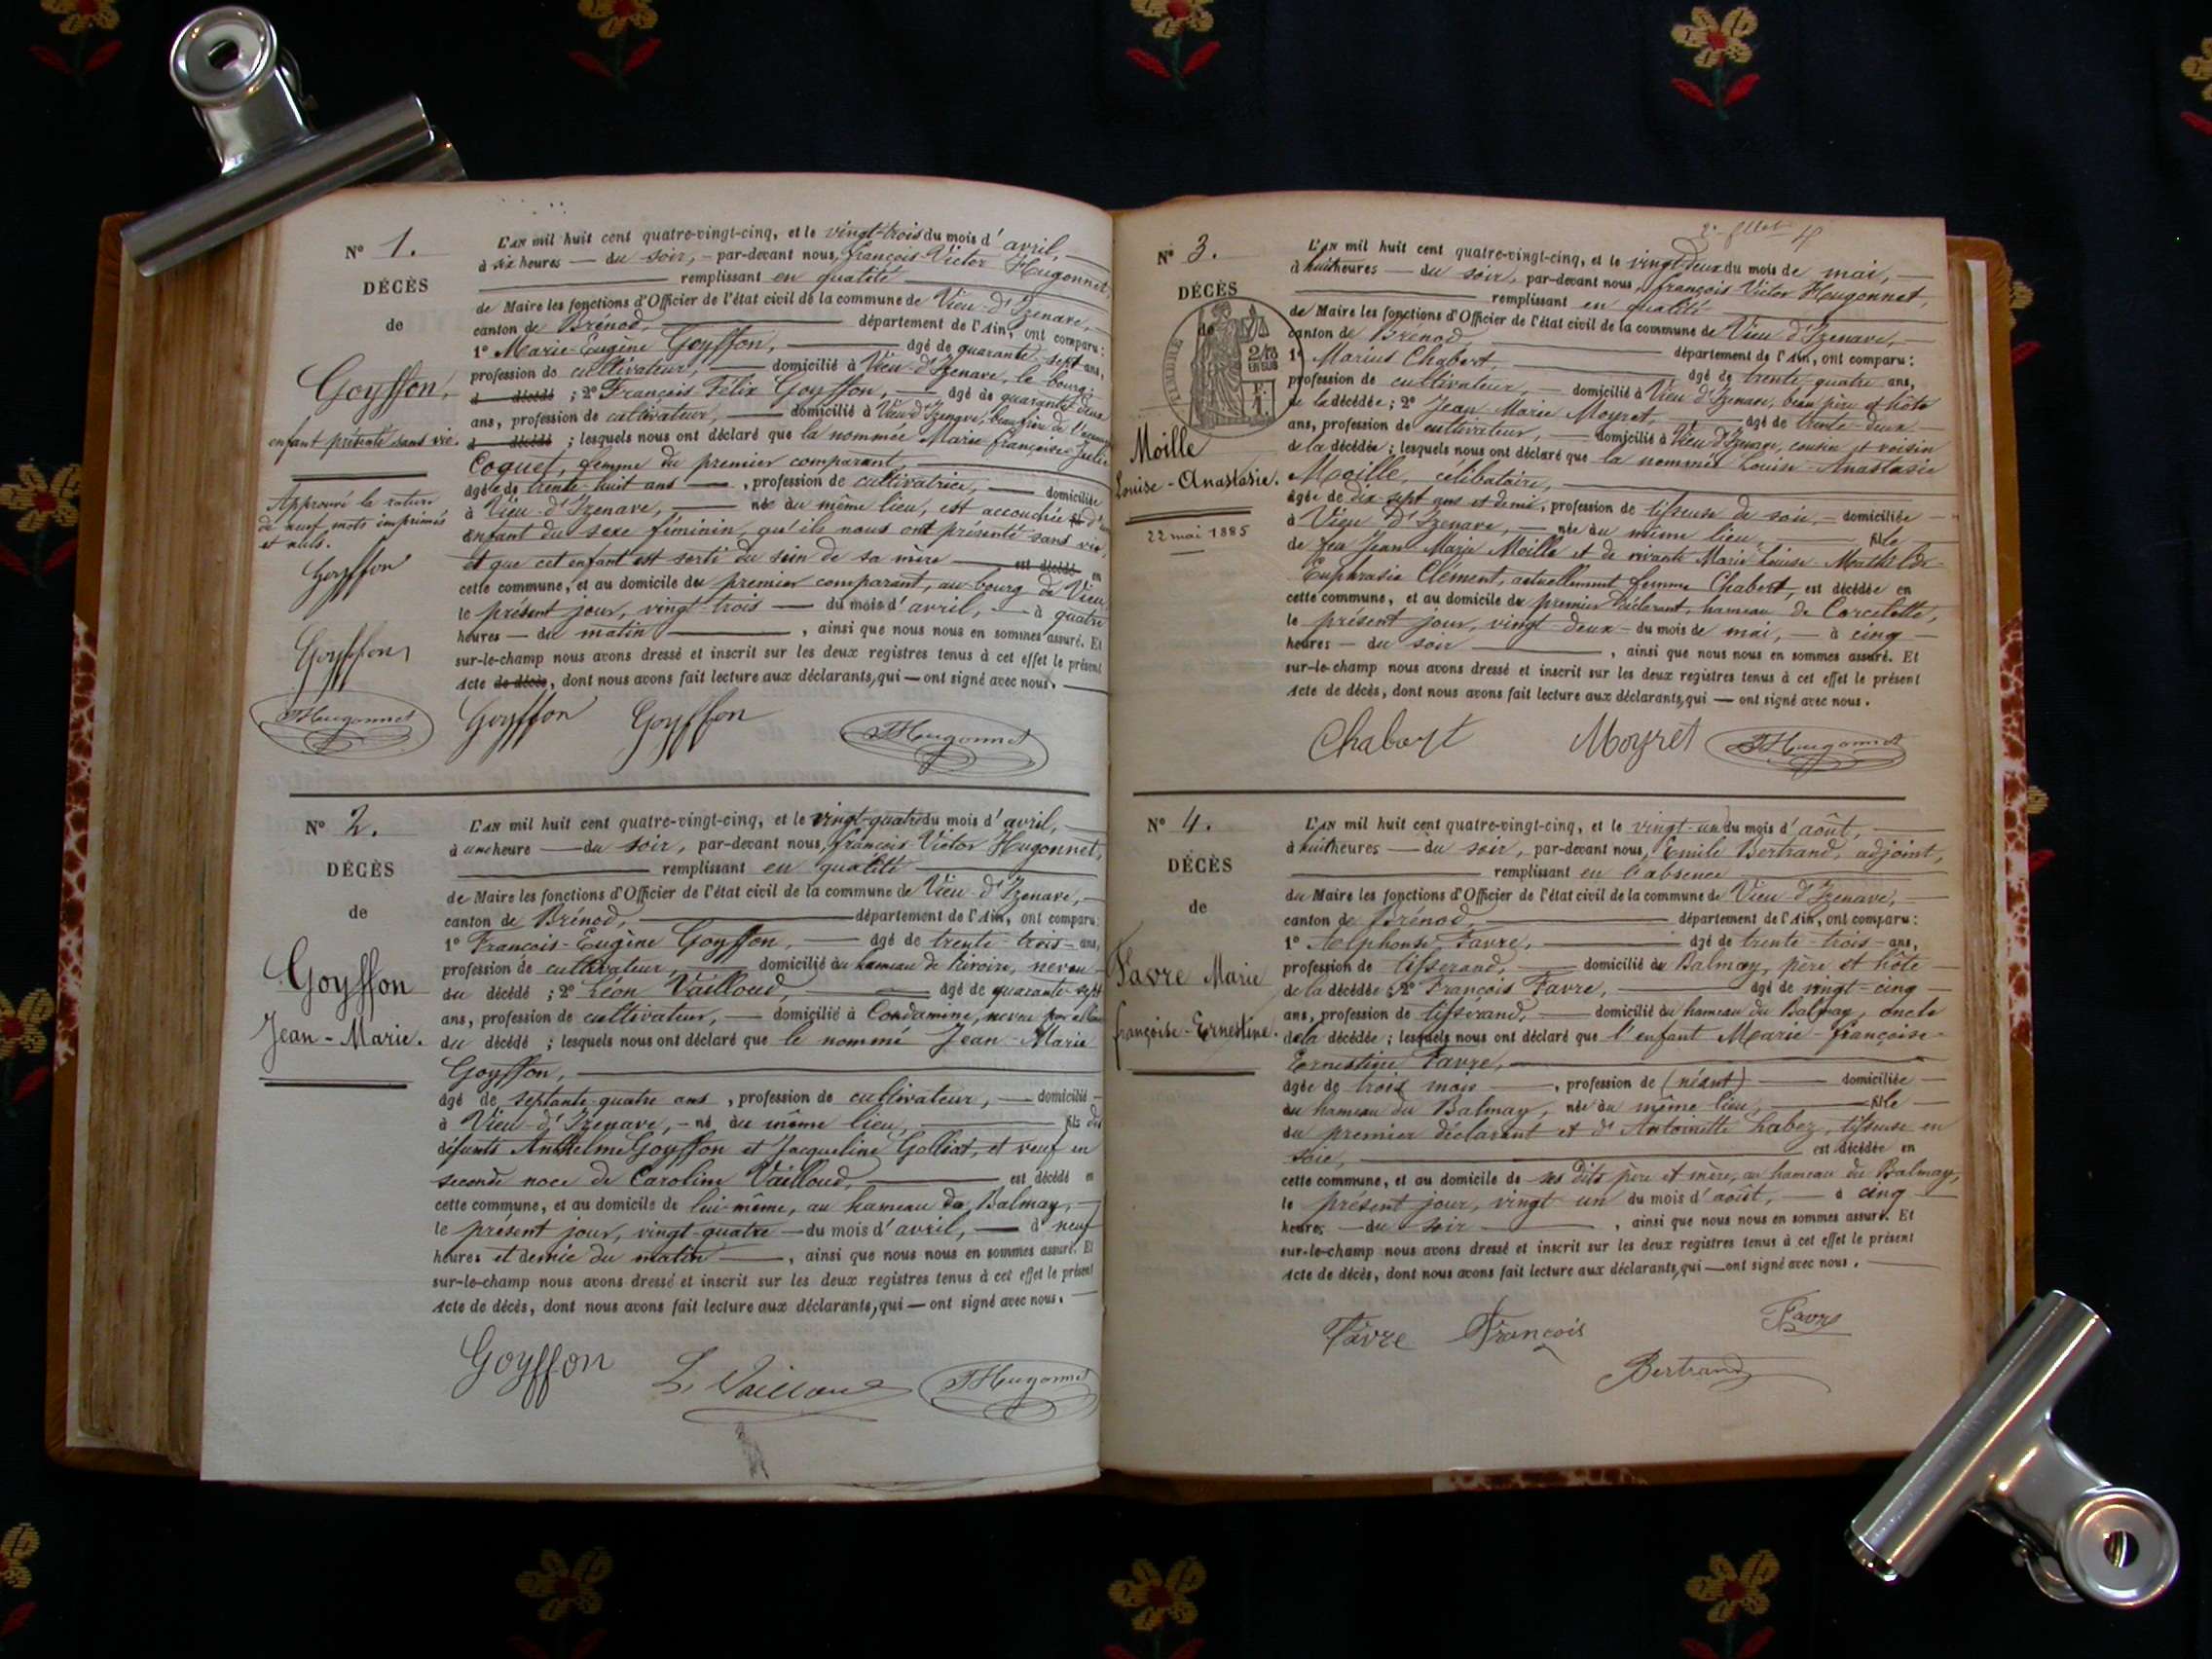 N° 1.
DÉCÈS
de
Goyffon,
enfant présenté sans vie.
Approuvé la rature
de neuf mots imprimés
et nuls.
Goyffon
Goyffon
FHugonnet
L'AN mil huit cent quatre-vingt-cinq, et le vingt-trois du mois d'avril,
à six heures — du soir, — par-devant nous, françois Victor Hugonnet,
remplissant en qualité
de Maire les fonctions d'Officier de l'état civil de la commune de Vieu-d'Izenave,
canton de Brénod, département de l'Ain, ont comparu:
1° Marie-Eugène Goyffon, âgé de quarante-sept ans,
profession de cultivateur, domicilié à Vieu-d'Izenave, le bourg,
d décédé ; 2° François Félix Goyffon, âgé de quarante-deux
ans, profession de cultivateur, domicilié à Vieu-d'Izenave, beau-frère de l'
d décédé ; lesquels nous ont déclaré que la nommée Marie-françoise Julie
Coquet, femme du premier comparant,
âgée de trente-huit ans —, profession de cultivatrice, — domiciliée
à Vieu-d'Izenave, — née au même lieu, est accouchée d'
enfant du sexe féminin, qu'ils nous ont présenté sans vie,
et que cet enfant est sorti du sein de sa mère — est décédé en
cette commune, et au domicile du premier comparant, au bourg de Vieu
le présent jour, vingt-trois — du mois d'avril, — à quatre
heures — du matin —, ainsi que nous nous en sommes assuré. Et
sur-le-champ nous avons dressé et inscrit sur les deux registres tenus à cet effet le présent
acte de décès, dont nous avons fait lecture aux déclarants, qui — ont signé avec nous.
Goyffon Goyffon FHugonnet
N° 2.
DÉCÈS
de
Goyffon
Jean-Marie.
L'AN mil huit cent quatre-vingt-cinq, et le vingt-quatre du mois d'avril,
à une heure — du soir, par-devant nous, françois Victor Hugonnet,
remplissant en qualité
de Maire les fonctions d'Officier de l'état civil de la commune de Vieu-d'Izenave,
canton de Brénod, département de l'Ain, ont comparu:
1° François-Eugène Goyffon, — âgé de trente-trois — ans,
profession de cultivateur, domicilié au hameau de Rivoire, neveu
du décédé ; 2° Léon Vailloud, âgé de quarante-sept
ans, profession de cultivateur, — domicilié à Condamine, neveu par
du décédé ; lesquels nous ont déclaré que le nommé Jean-Marie
Goyffon,
âgé de septante-quatre ans, profession de cultivateur, — domicilié
à Vieu-d'Izenave, — né au même lieu, fils des
défunts Anthelme Goyffon et Jacqueline Golliat, et veuf en
seconde noce de Caroline Vailloud, est décédé en
cette commune, et au domicile de lui-même, au hameau du Balmay,
le présent jour, vingt-quatre — du mois d'avril, — à neuf
heures et demie du matin —, ainsi que nous nous en sommes assuré. Et
sur-le-champ nous avons dressé et inscrit sur les deux registres tenus à cet effet le présent
acte de décès, dont nous avons fait lecture aux déclarants, qui — ont signé avec nous.
Goyffon L. Vailloud FHugonnet
N° 3.
DÉCÈS
de
TIMBRE
2/10
EN SUS
Moille
Louise-Anastasie.
22 mai 1885
L'AN mil huit cent quatre-vingt-cinq, et le vingt-deux du mois de mai,
à huit heures — du soir, par-devant nous, françois-Victor Hugonnet,
remplissant en qualité
de Maire les fonctions d'Officier de l'état civil de la commune de Vieu d'Izenave,
canton de Brénod, département de l'Ain, ont comparu:
1° Marius Chabert, âgé de trente-quatre ans,
profession de cultivateur, — domicilié à Vieu d'Izenave, beau-père et hôte
de la décédée ; 2° Jean Marie Moyret, — âgé de trente-deux
ans, profession de cultivateur, — domicilié à Vieu d'Izenave, cousin et voisin
de la décédée ; lesquels nous ont déclaré que la nommée Louise-Anastasie
Moille, célibataire,
âgée de dix-sept ans et demi, profession de tisseuse de soie, — domiciliée
à Vieu d'Izenave, — née au même lieu, fille
de feu Jean-Marie Moille et de vivante Marie-Louise-Mathilde-
Euphrasie Clément, actuellement femme Chabert, est décédée en
cette commune, et au domicile du premier déclarant, hameau de Corcelette,
le présent jour, vingt-deux — du mois de mai, — à cinq
heures — du soir —, ainsi que nous nous en sommes assuré. Et
sur-le-champ nous avons dressé et inscrit sur les deux registres tenus à cet effet le présent
acte de décès, dont nous avons fait lecture aux déclarants, qui — ont signé avec nous.
Chabert Moyret FHugonnet
N° 4.
DÉCÈS
de
Favre Marie
françoise-Ernestine.
L'AN mil huit cent quatre-vingt-cinq, et le vingt-un du mois d'août,
à huit heures — du soir, par-devant nous, Emile Bertrand, adjoint,
remplissant en l'absence
du Maire les fonctions d'Officier de l'état civil de la commune de Vieu d'Izenave,
canton de Brénod, département de l'Ain, ont comparu:
1° Alphonse Favre, âgé de trente-trois — ans,
profession de tisserand, — domicilié au Balmay, père et hôte
de la décédée ; 2° François Favre, âgé de vingt-cinq
ans, profession de tisserand, — domicilié au hameau du Balmay, oncle
de la décédée ; lesquels nous ont déclaré que l'enfant Marie-françoise-
Ernestine Favre,
âgée de trois mois —, profession de (néant) — domiciliée
au hameau du Balmay, née au même lieu, fille
du premier déclarant et d'Antoinette Labez, tisseuse en
soie, est décédée en
cette commune, et au domicile de ses dits père et mère, au hameau du Balmay,
le présent jour, vingt-un du mois d'août, — à cinq
heures — du soir —, ainsi que nous nous en sommes assuré. Et
sur-le-champ nous avons dressé et inscrit sur les deux registres tenus à cet effet le présent
acte de décès, dont nous avons fait lecture aux déclarants, qui — ont signé avec nous.
Favre François Favre
Bertrand